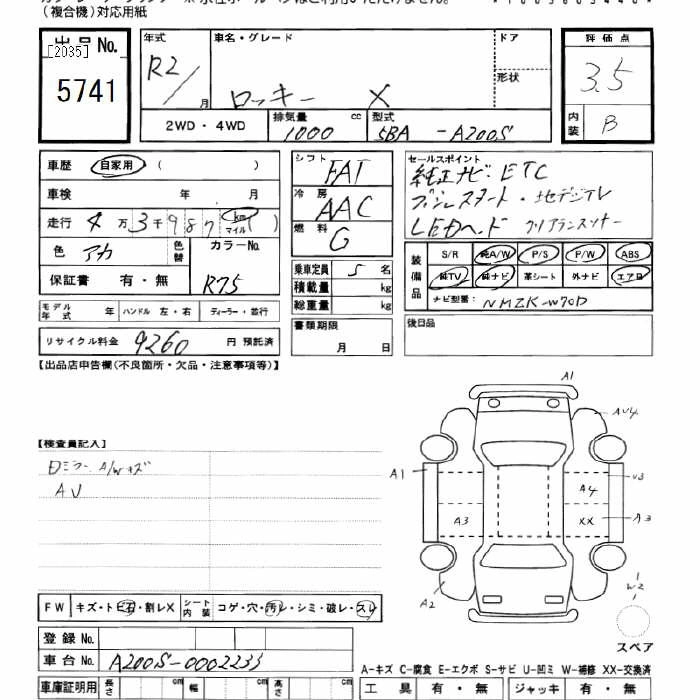 (複合機)対応用紙
出品No.
[2035]
5741
年式
R2/
月
車名・グレード
ロッキー X
ドア
形状
評価点
3.5
内装
B
2WD・4WD
排気量 cc
1000
型式
5BA -A200S
車歴 自家用 ( )
車検 年 月
走行 4万3千987 (km マイル)
色 アカ
色替
カラーNo.
R75
保証書 有・無
シフト
FAT
冷房
AAC
燃料
G
セールスポイント
純正ナビ・ETC
プッシュスタート・地デジTV
LEDヘッド クリアランスソナー
装備品
S/R 純A/W P/S P/W ABS
純TV 純ナビ 革シート 外ナビ エアB
ナビ型番: NMZK-W70D
乗車定員 5 名
積載量 kg
総重量 kg
モデル年式 年 ハンドル 左・右 ディーラー・並行
リサイクル料金 9260 円 預託済
書類期限
月 日
後日品
【出品店申告欄(不良箇所・欠品・注意事項等)】
【検査員記入】
Dミラー A/Wキズ
AU
A1
AU4
A1
A4
U3
A3
XX
A3
A2
W2
スペア
FW キズ・トビ石・割レX
シート内装 コゲ・穴・汚レ・シミ・破レ・スレ
登録No.
車台No. A200S-0002233
車庫証明用 長さ cm 幅 cm 高さ cm
A-キズ C-腐食 E-エクボ S-サビ U-凹ミ W-補修 XX-交換済
工具 有・無 ジャッキ 有・無